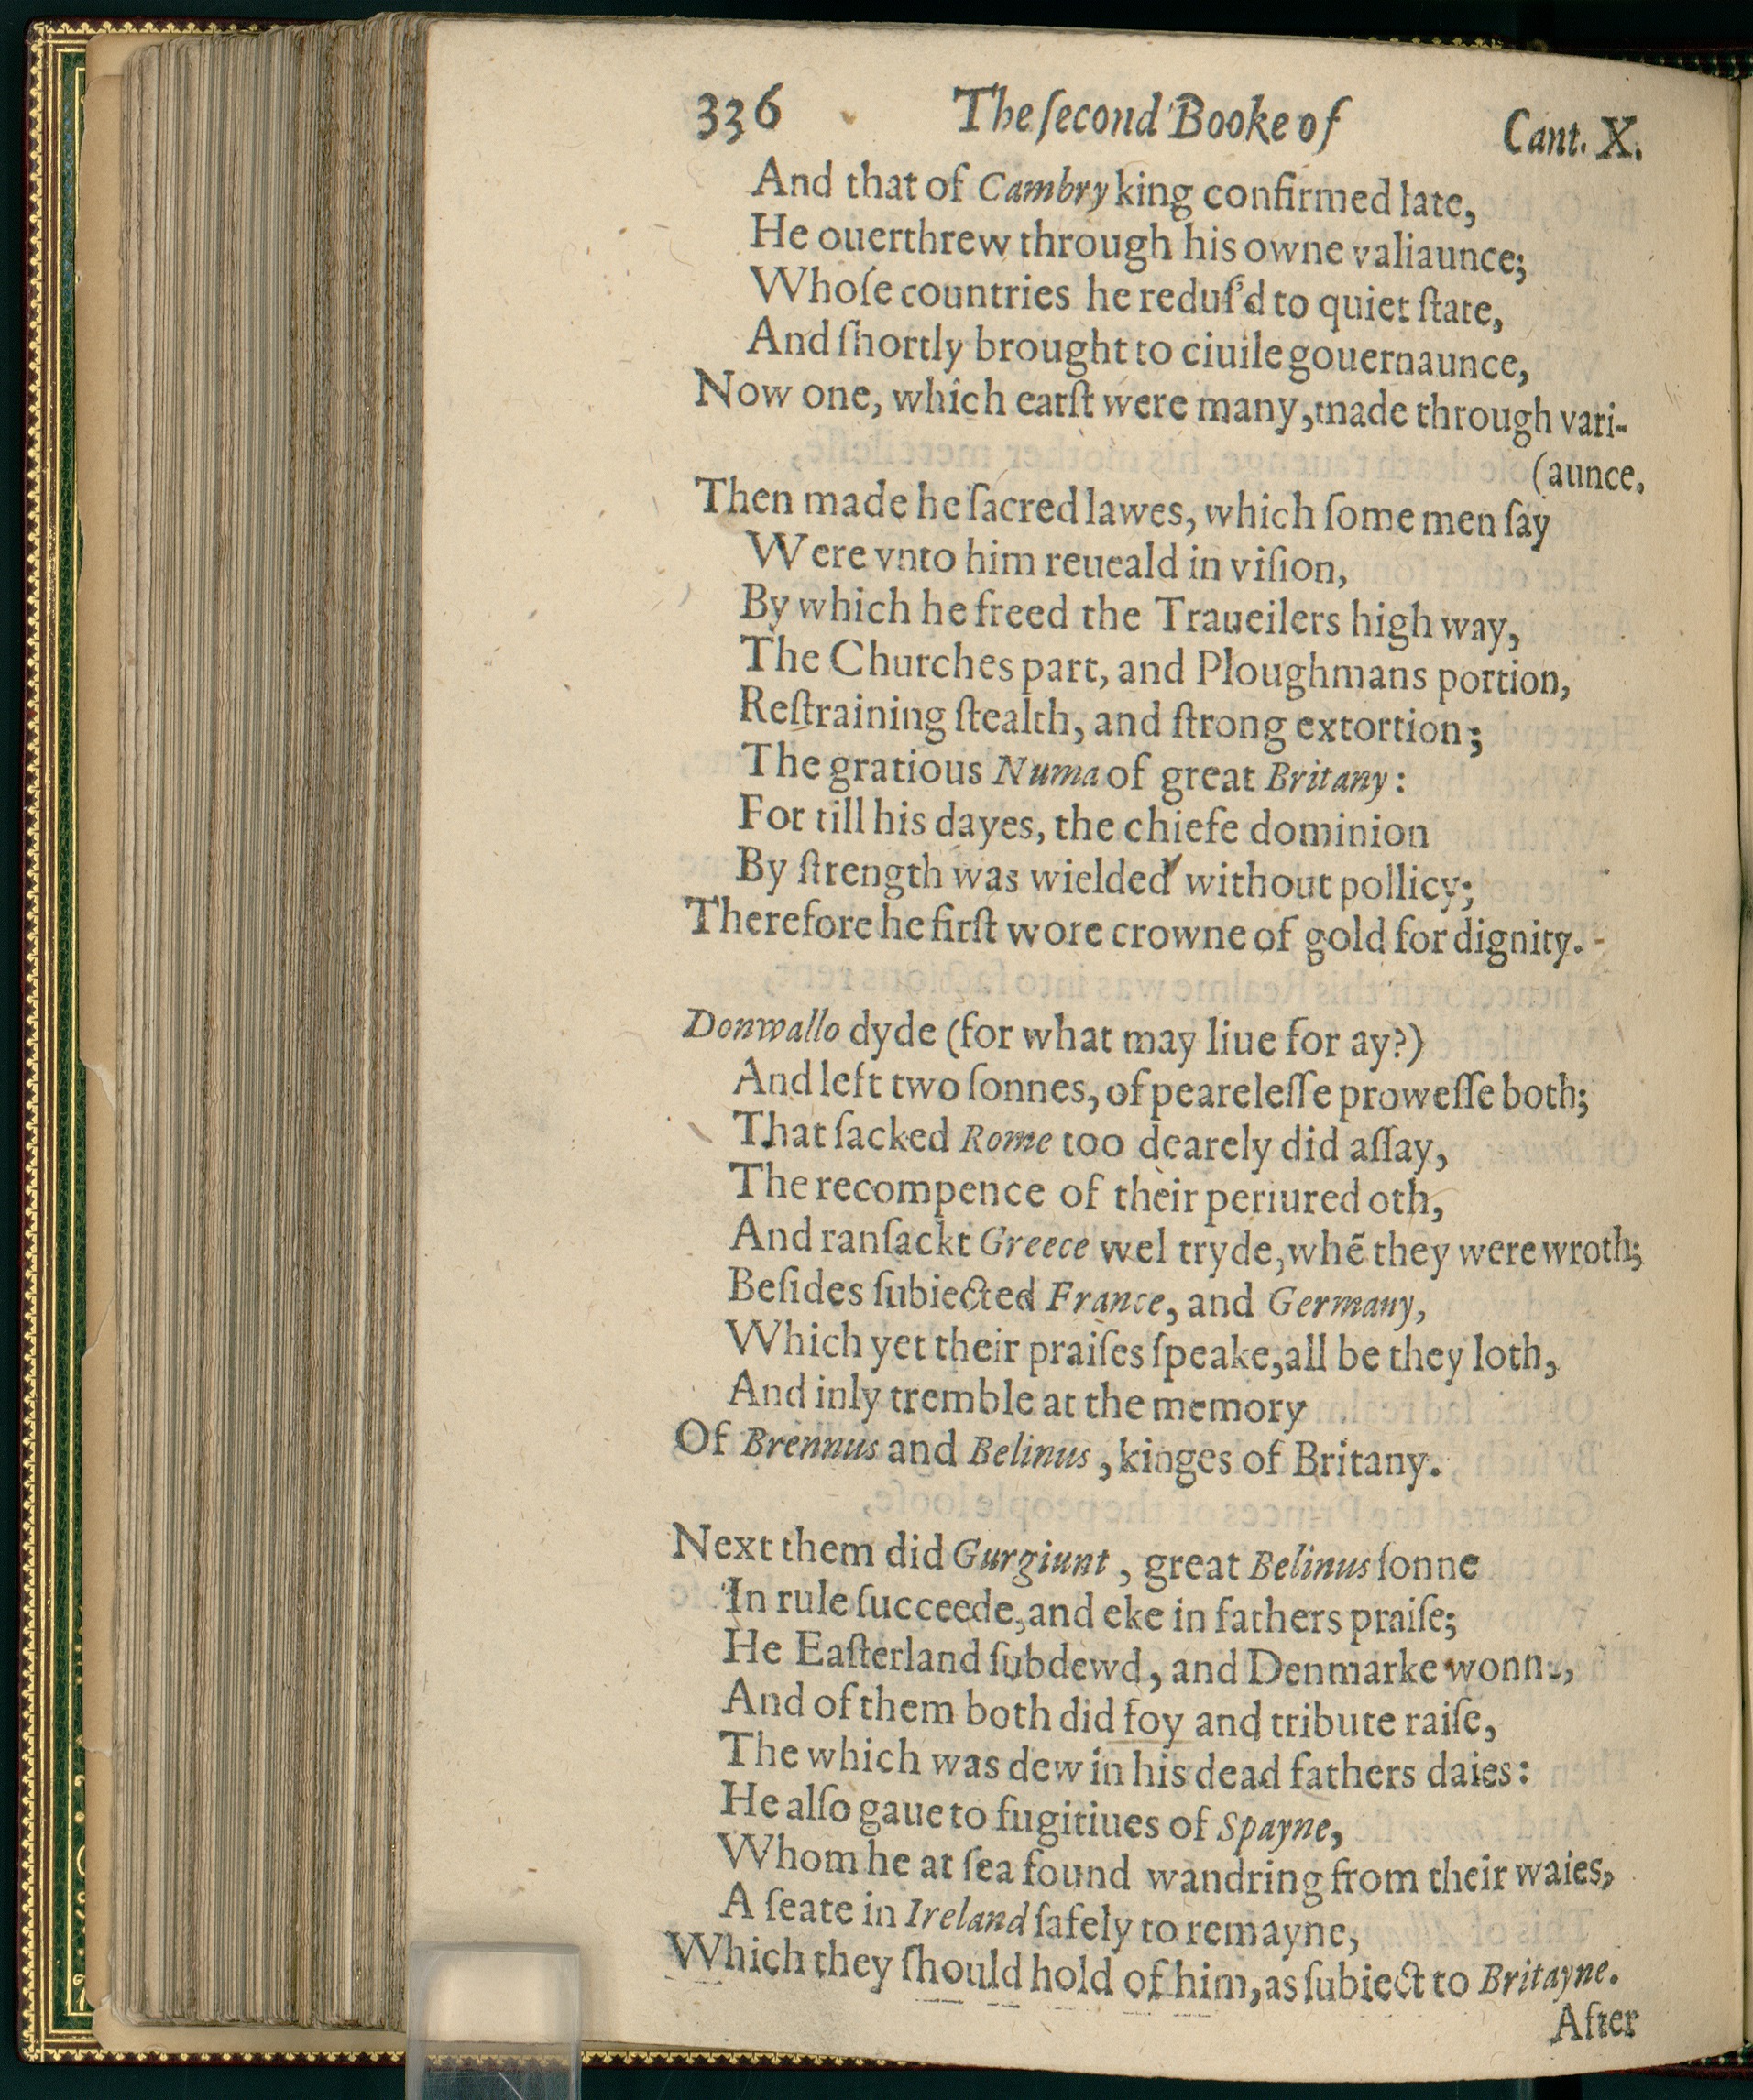 336 The ſecond Booke of Cant. X.
And that of Cambry king confirmed late,
He ouerthrew through his owne valiaunce;
Whoſe countries he reduſ'd to quiet ſtate,
And ſhortly brought to ciuile gouernaunce,
Now one, which earſt were many, made through vari-
(aunce.
Then made he ſacred lawes, which ſome men ſay
Were vnto him reueald in viſion,
By which he freed the Traueilers high way,
The Churches part, and Ploughmans portion,
Reſtraining ſtealth, and ſtrong extortion;
The gratious Numa of great Britany:
For till his dayes, the chiefe dominion
By ſtrength was wielded without pollicy;
Therefore he firſt wore crowne of gold for dignity.
Donwallo dyde (for what may liue for ay?)
And left two ſonnes, of peareleſſe proweſſe both;
That ſacked Rome too dearely did aſſay,
The recompence of their periured oth,
And ranſackt Greece wel tryde, whẽ they were wroth;
Beſides ſubiected France, and Germany,
Which yet their praiſes ſpeake, all be they loth,
And inly tremble at the memory
Of Brennus and Belinus, kinges of Britany.
Next them did Gurgiunt, great Belinus ſonne
In rule ſucceede, and eke in fathers praiſe;
He Eaſterland ſubdewd, and Denmarke wonne,
And of them both did foy and tribute raiſe,
The which was dew in his dead fathers daies:
He alſo gaue to fugitiues of Spayne,
Whom he at ſea found wandring from their waies,
A ſeate in Ireland ſafely to remayne,
Which they ſhould hold of him, as ſubiect to Britayne.
After